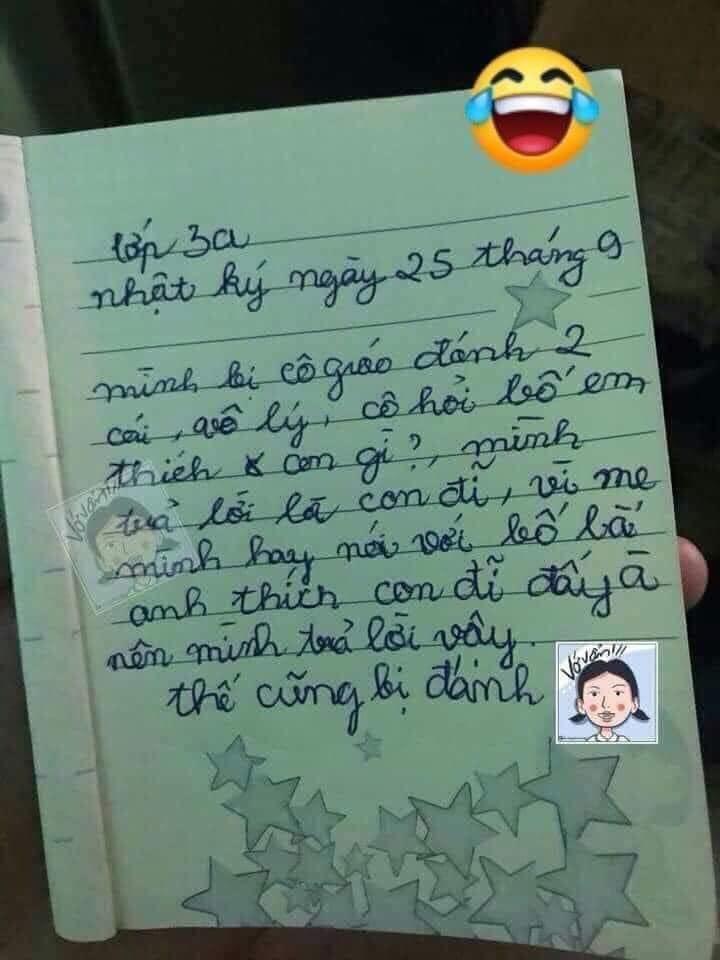 lớp 3a
nhật ký ngày 25 tháng 9
mình bị cô giáo đánh 2
cái, vô lý, cô hỏi bố em
thích con gì?, mình
trả lời là con đĩ, vì mẹ
mình hay nói với bố là
anh thích con đĩ đấy à
nên mình trả lời vậy.
thế cũng bị đánh
Vớ vẩn!!!
Vớ vẩn!!!